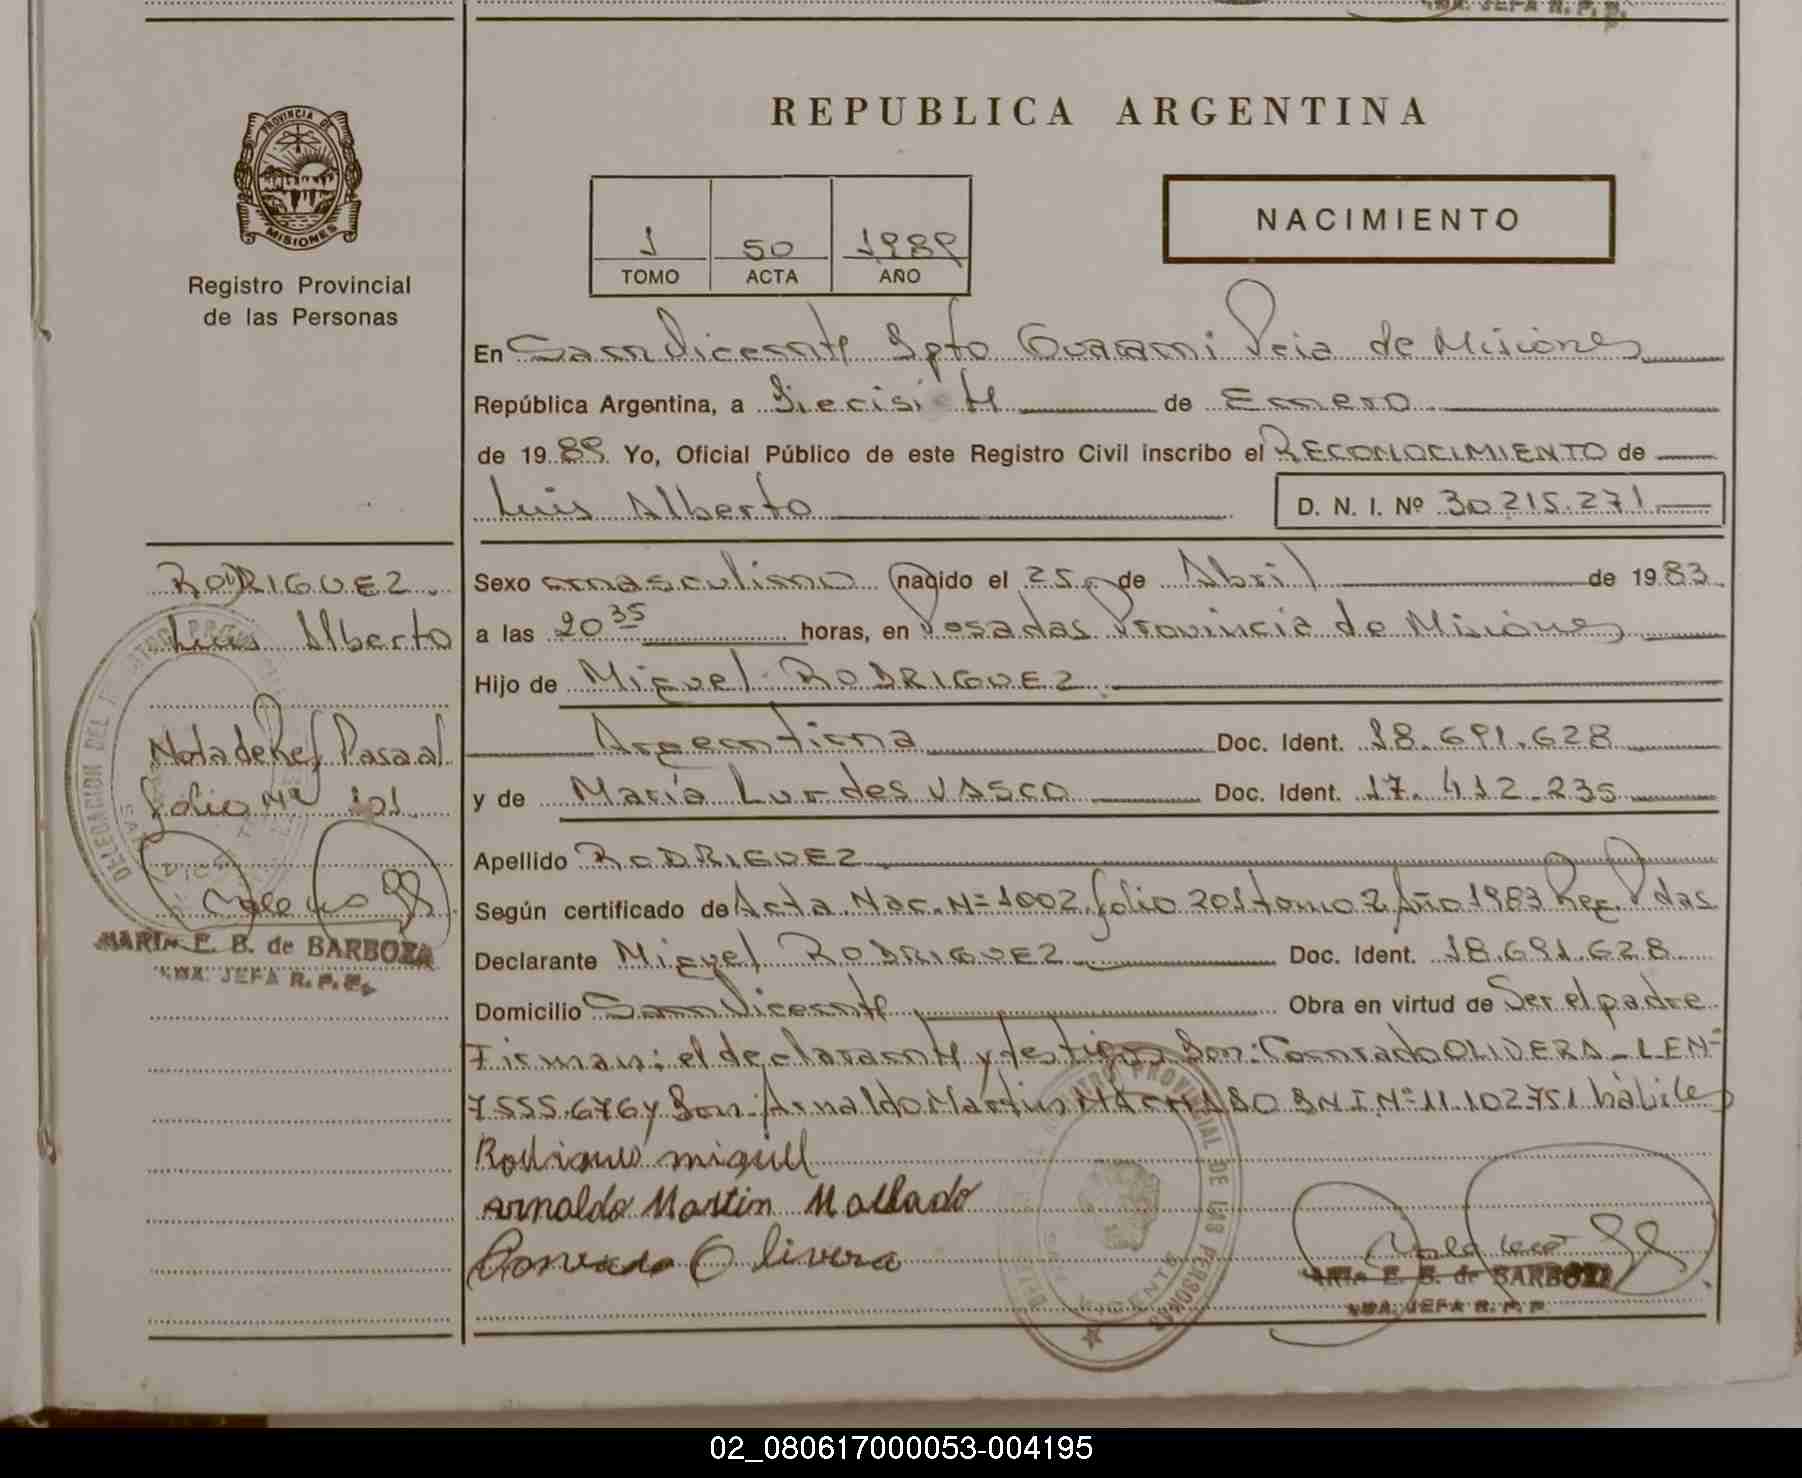 JEFA R. P. P.
PROVINCIA DE
MISIONES
Registro Provincial
de las Personas
REPUBLICA ARGENTINA
1 50 1989
TOMO ACTA AÑO
NACIMIENTO
En San Vicente Dpto Guarani Pcia de Misiones
República Argentina, a Diecisiete de Enero
de 1989 Yo, Oficial Público de este Registro Civil inscribo el RECONOCIMIENTO de
Luis Alberto D. N. I. Nº 30.215.271
Sexo masculino nacido el 25 de Abril de 1983
a las 20 35 horas, en Posadas Provincia de Misiones
Hijo de Miguel RODRIGUEZ
Argentina Doc. Ident. 18.691.628
y de María Lurdes VASCO Doc. Ident. 17.412.235
Apellido RODRIGUEZ
Según certificado de Acta Nac. Nº 1002 folio 201 tomo 2 Año 1983 Reg. Pdas
Declarante Miguel RODRIGUEZ Doc. Ident. 18.691.628
Domicilio San Vicente Obra en virtud de Ser el padre
Firman: el declarante y testigos Don: Conrado OLIVERA - L.E.Nº
7.555.676 y Don: Arnaldo Martin D.N.I. Nº 11.102.751 hábiles
Rodrigues miguel
Arnaldo Martin
Conrado Olivera
REGISTRO PROVINCIAL DE LAS PERSONAS
VICENTE
MARIA E. B. de BARBOZA
JEFA R. P. P.
RODRIGUEZ
Luis Alberto
Nota de Ref Pasa al
folio Nº 101
DELEGACION DEL REGISTRO PROVINCIAL
MARIA E. B. de BARBOZA
JEFA R. P. P.
02_080617000053-004195